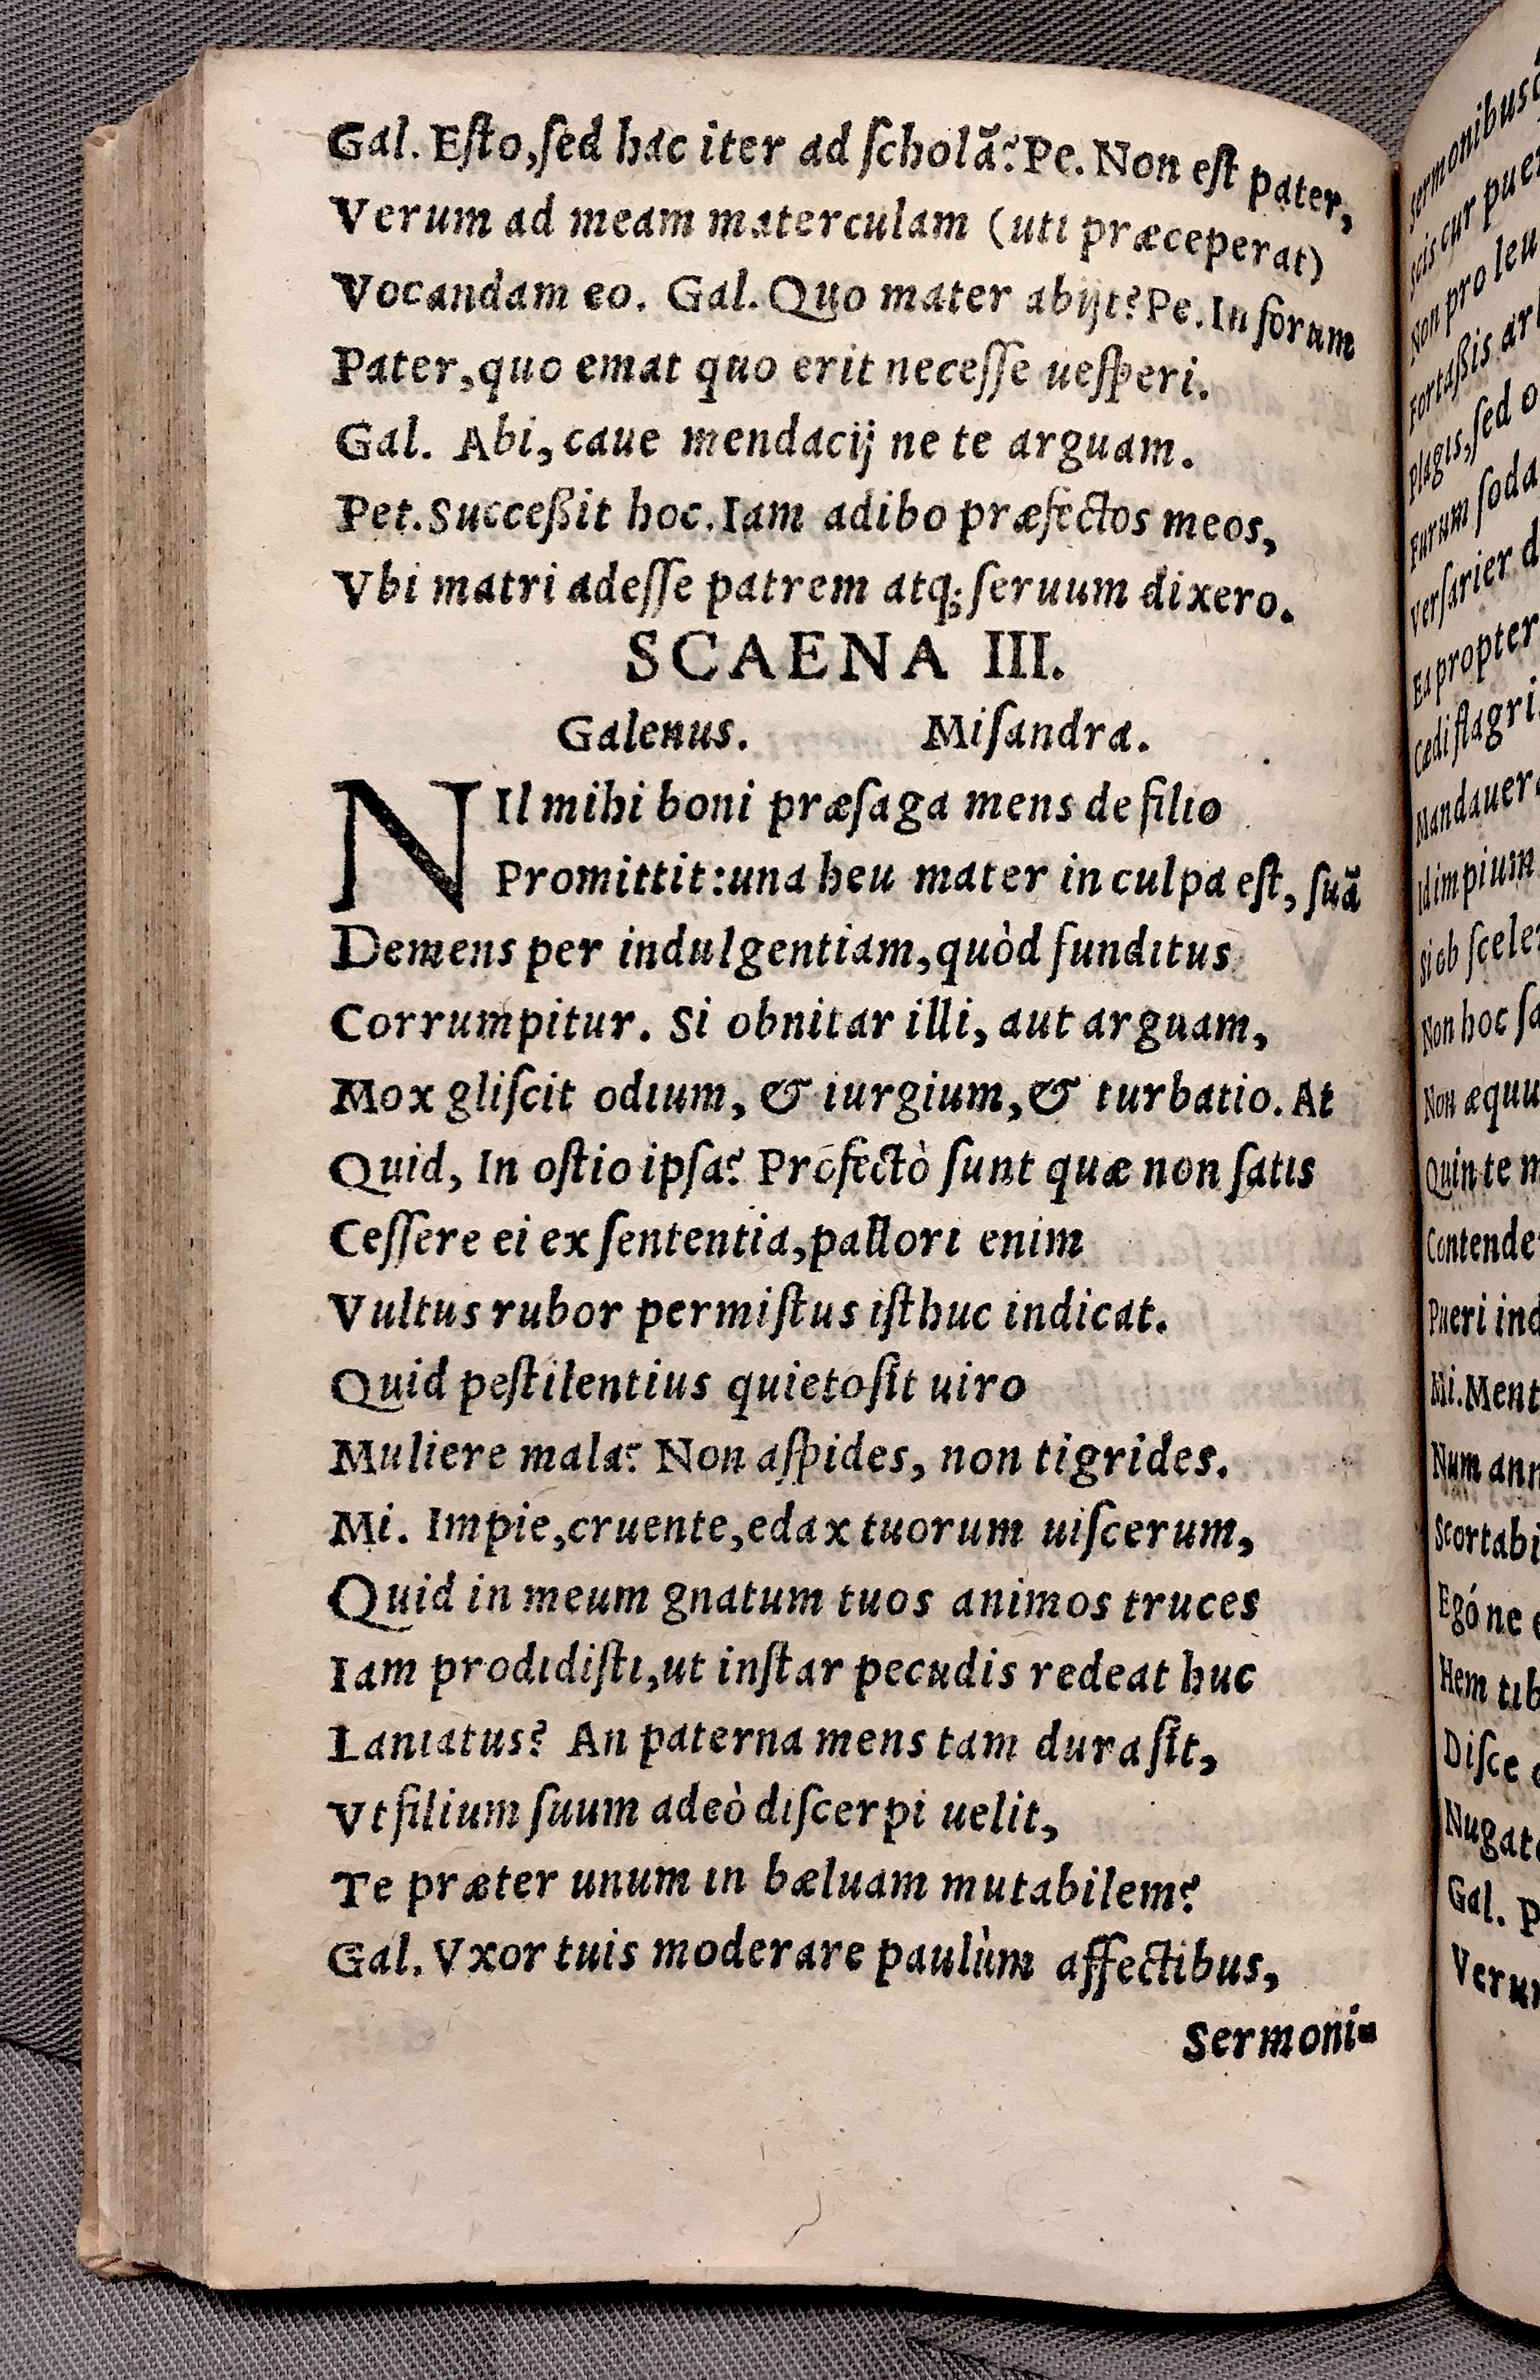 Gal. Eſto, ſed hac iter ad ſcholã? Pe. Non eſt pater,
Verum ad meam materculam (uti præceperat)
Vocandam eo. Gal. Quo mater abijt? Pe. In forum
Pater, quo emat quo erit neceſſe ueſperi.
Gal. Abi, caue mendacij ne te arguam.
Pet. Succeßit hoc. Iam adibo præfectos meos,
Vbi matri adeſſe patrem atq; ſeruum dixero.
SCAENA III.
Galenus. Miſandra.
NIl mihi boni præſaga mens de filio
Promittit: una heu mater in culpa eſt, ſuã
Demens per indulgentiam, quòd funditus
Corrumpitur. Si obnitar illi, aut arguam,
Mox gliſcit odium, & iurgium, & turbatio. At
Quid, In oſtio ipſa? Profectò ſunt quæ non ſatis
Ceſſere ei ex ſententia, pallori enim
Vultus rubor permiſtus iſthuc indicat.
Quid peſtilentius quieto ſit uiro
Muliere mala? Non aſpides, non tigrides.
Mi. Impie, cruente, edax tuorum uiſcerum,
Quid in meum gnatum tuos animos truces
Iam prodidiſti, ut inſtar pecudis redeat huc
Laniatus? An paterna mens tam dura ſit,
Vt filium ſuum adeò diſcerpi uelit,
Te præter unum in bæluam mutabilem?
Gal. Vxor tuis moderare paulùm affectibus,
Sermoni-
ſermonibus
Scis cur pue
Non pro leu
Fortaßis ar
Plagis, ſed o
Furum ſoda
Verſarier d
Eapropter
Cædi flagri
Mandauer
Id impium
Si ob ſcele
Non hoc ſa
Non æquu
Quin te m
Contende
Pueri ind
Mi. Ment
Num ann
Scortabi
Egóne
Hem tib
Diſce
Nugat
Gal. P
Verum